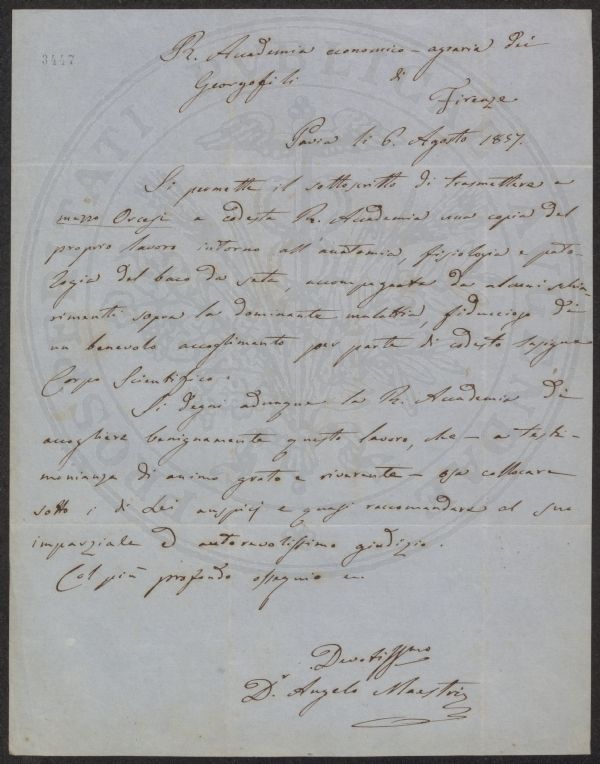 3447
R. Accademia economico-agraria dei
Georgofili di
Firenze
Pavia li 6. Agosto 1857.
Si permette il sottoscritto di trasmettere a
mezzo Orcesi a codesta R. Accademia una copia del
proprio lavoro intorno all'anatomia, fisiologia e pato-
logia del baco da seta, accompagnata da alcuni schia-
rimenti sopra la dominante malattia, fiducioso di
un benevolo accoglimento per parte di codesto insigne
Corpo Scientifico.
Si degni adunque la R. Accademia di
accogliere benignamente questo lavoro, che - a testi-
monianza di animo grato e riverente - osa collocare
sotto i di Lei auspicj e quasi raccomandare al suo
imparziale ed autorevolissimo giudizio.
Col più profondo ossequio
Devotissmo
Dr Angelo Maestri